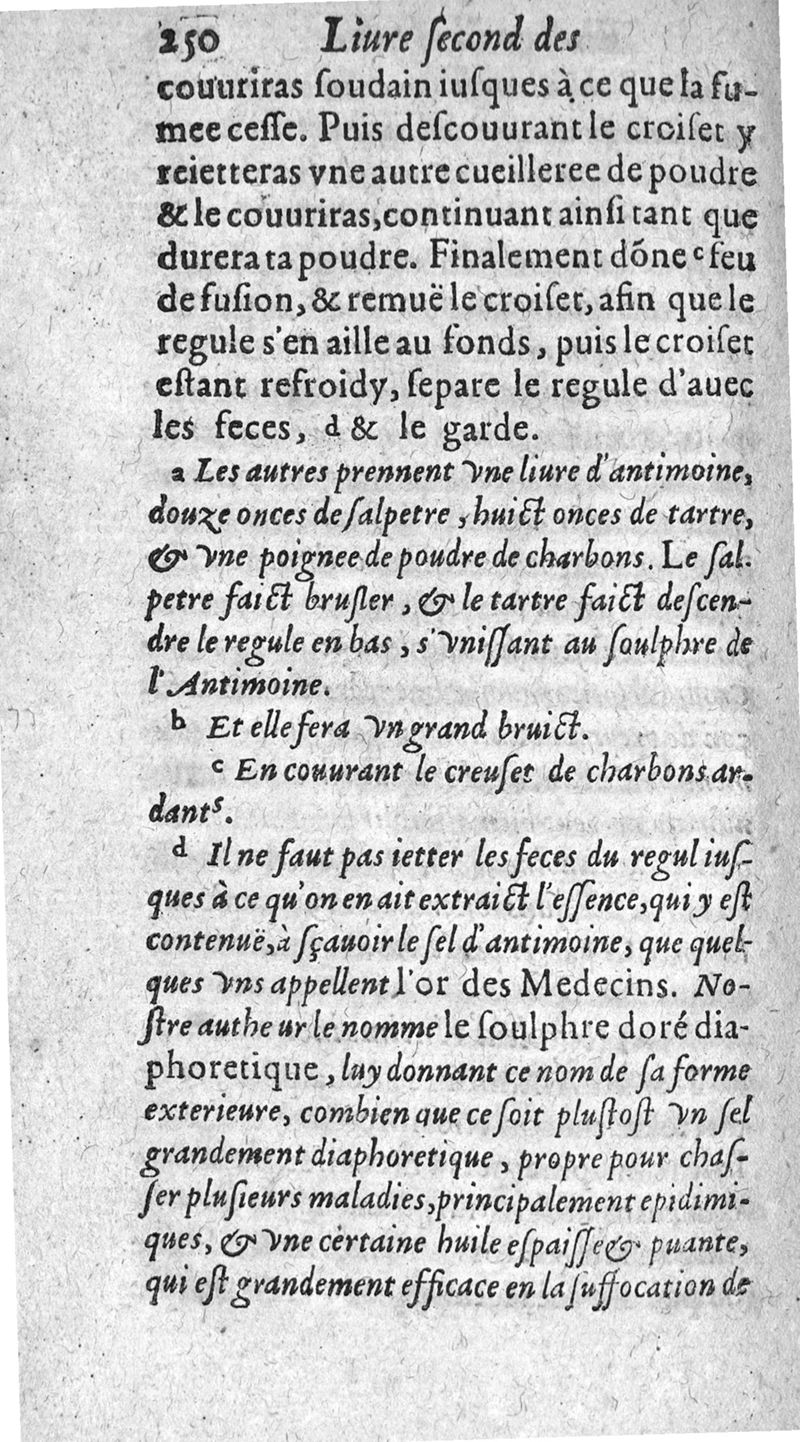 250 Liure ſecond des
couuriras ſoudain iuſques à ce que la fu-
mee ceſſe. Puis deſcouurant le croiſet y
reietteras vne autre cueilleree de poudre
& le couuriras, continuant ainſi tant que
durera ta poudre. Finalement dõne ᶜ feu
de fuſion, & remuë le croiſet, afin que le
regule s'en aille au fonds, puis le croiſet
eſtant refroidy, ſepare le regule d'auec
les feces, d & le garde.
a Les autres prennent vne liure d'antimoine,
douze onces de ſalpetre, huict onces de tartre,
& vne poignee de poudre de charbons. Le ſal-
petre faict bruſler, & le tartre faict deſcen-
dre le regule en bas, s'vniſſant au ſoulphre de
l'Antimoine.
b Et elle fera vn grand bruict.
c En couurant le creuſet de charbons ar-
dants.
d Il ne faut pas ietter les feces du regul iuſ-
ques à ce qu'on en ait extraict l'eſſence, qui y eſt
contenuë, à ſçauoir le ſel d'antimoine, que quel-
ques vns appellent l'or des Medecins. No-
ſtre autheur le nomme le ſoulphre doré dia-
phoretique, luy donnant ce nom de ſa forme
exterieure, combien que ce ſoit pluſtoſt vn ſel
grandement diaphoretique, propre pour chaſ-
ſer pluſieurs maladies, principalement epidimi-
ques, & vne certaine huile eſpaiſſe & puante,
qui eſt grandement efficace en la ſuffocation de